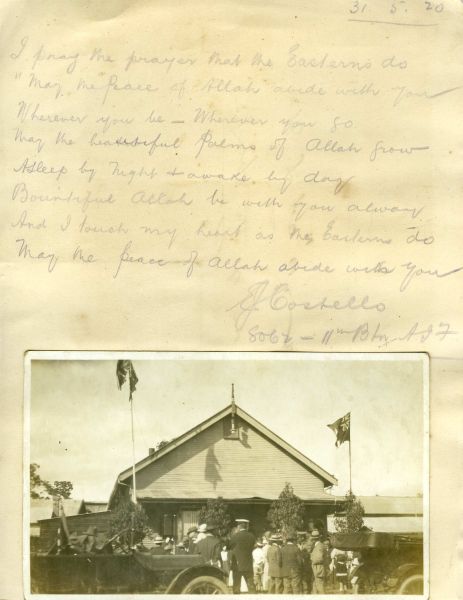 31. 5. 20
I pray the prayer that the Easterns do
"May the Peace of Allah abide with you
Wherever you be – Wherever you go
May the beautiful Palms of Allah grow
Asleep by Night & awake by day
Bountiful Allah be with you alway
And I touch my heart as the Easterns do
May the Peace of Allah abide with you
EJ Costello
8062 – 11th Btn A I F